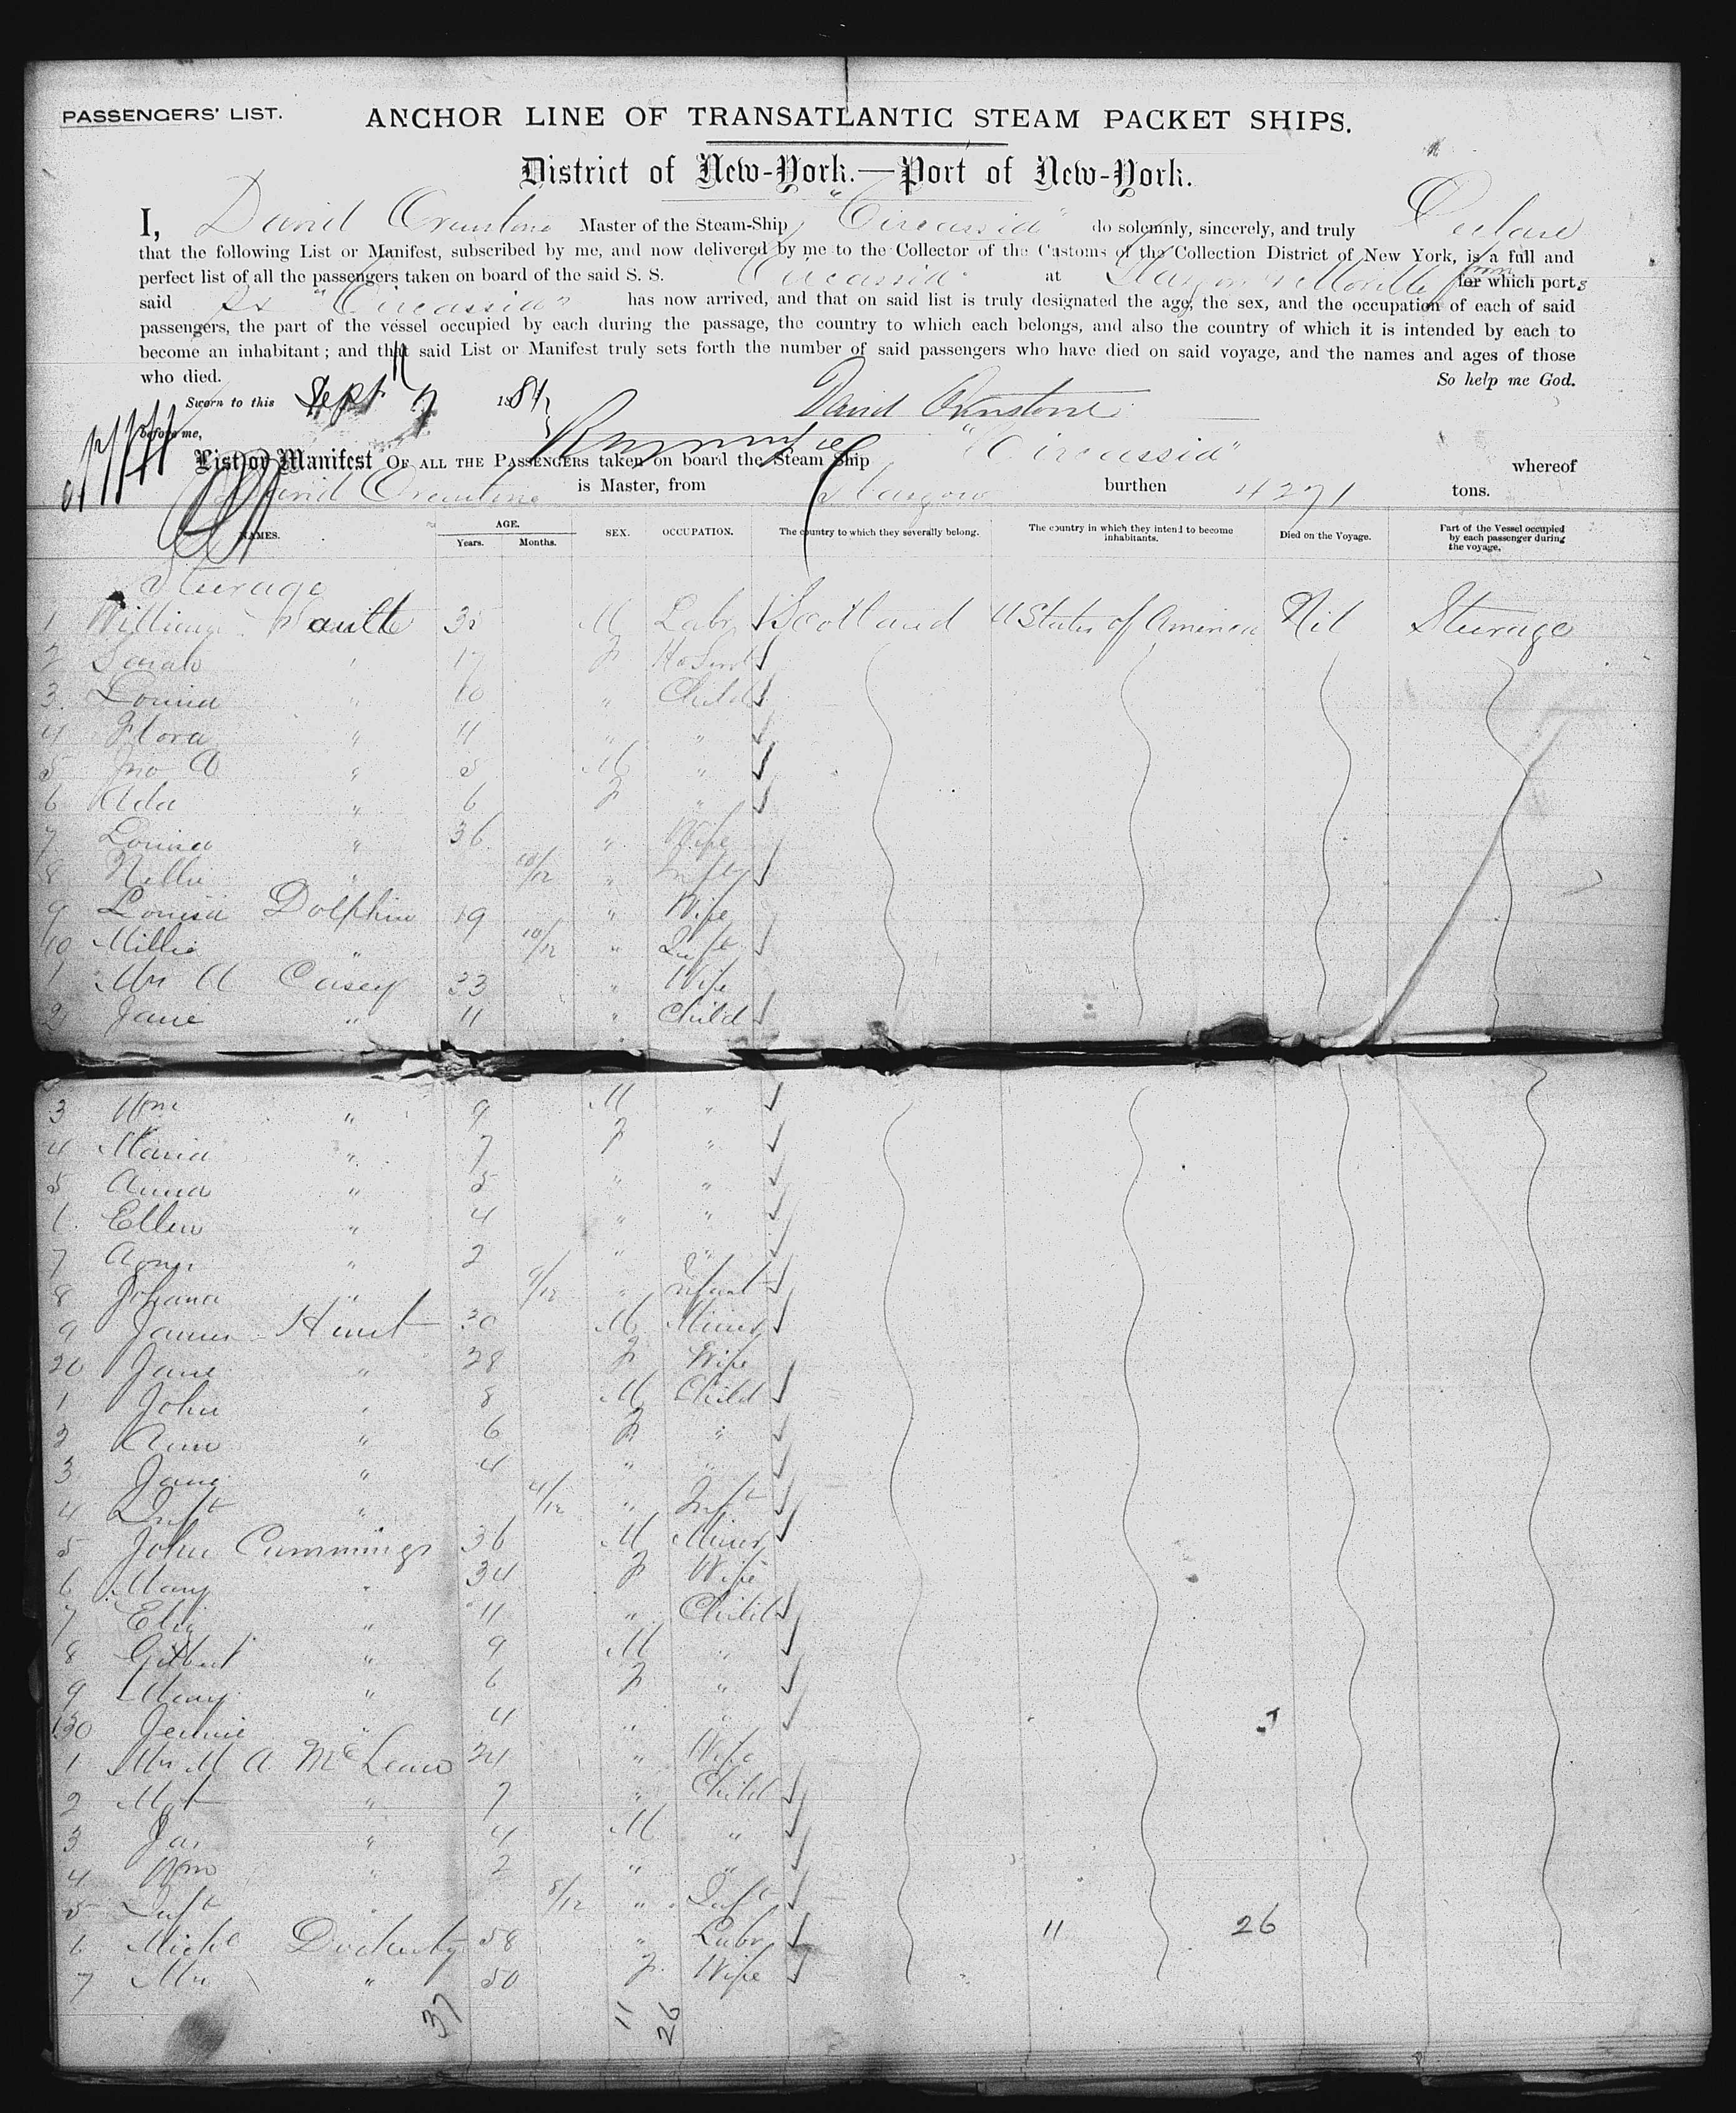 PASSENGERS' LIST.
ANCHOR LINE OF TRANSATLANTIC STEAM PACKET SHIPS.
District of New-York.—Port of New-York.
I, David Master of the Steam-Ship "Circassia" do solemnly, sincerely, and truly Declare
that the following List or Manifest, subscribed by me, and now delivered by me to the Collector of the Customs of the Collection District of New York, is a full and
perfect list of all the passengers taken on board of the said S. S. Circassia at Glasgow & Moville from which ports
said "Circassia" has now arrived, and that on said list is truly designated the age, the sex, and the occupation of each of said
passengers, the part of the vessel occupied by each during the passage, the country to which each belongs, and also the country of which it is intended by each to
become an inhabitant; and that said List or Manifest truly sets forth the number of said passengers who have died on said voyage, and the names and ages of those
who died. So help me God.
Sworn to this Sept 188 David
before me,
List or Manifest OF ALL THE PASSENGERS taken on board the Steam Ship "Circassia" whereof
David is Master, from Glasgow burthen 4271 tons.
NAMES. AGE. Years. Months. SEX. OCCUPATION. The country to which they severally belong. The country in which they intend to become inhabitants. Died on the Voyage. Part of the Vessel occupied by each passenger during the voyage.
Steerage
1 William M Labr Scotland U States of America Nil Steerage
2 Sarah " 17 F
3 Louisa " 10 " Child
4 Flora " 11 " "
5 Jno A " M "
6 Ada " 6 F "
7 Louisa " 36 " Wife
8 Nellie " 10/12 "
9 Louisa Dolphin 19 " Wife
10 Millie " 10/12 " Inft
1 Mrs A Casey 33 " Wife
2 Jane " 11 " Child
3 Wm " 9 M "
4 Maria " 7 F "
5 Anna " 5 " "
6 Ellen " 4 " "
7 Agnes " 2 " "
8 Johana " 9/12 " Infant
9 James Hunt 30 M Miner
20 Jane " 28 F Wife
1 John " 8 M Child
2 Ann " 6 F "
3 Jane " 4 " "
4 Inft " 4/12 " Inft
5 John Cummings 36 M Miner
6 Mary " 34 F Wife
7 Eliz " 11 " Child
8 Gilbert " 9 M "
9 Mary " 6 F "
30 Jennie " 4 " "
1 Mrs M A McLean 24 " Wife
2 Mgt " 7 " Child
3 Jas " 4 M "
4 Wm " 2 " "
5 Inft " 8/12 " Inft
6 Michl Docherty 58 " Labr 11 26
7 Mrs " 50 F Wife
37 11 26